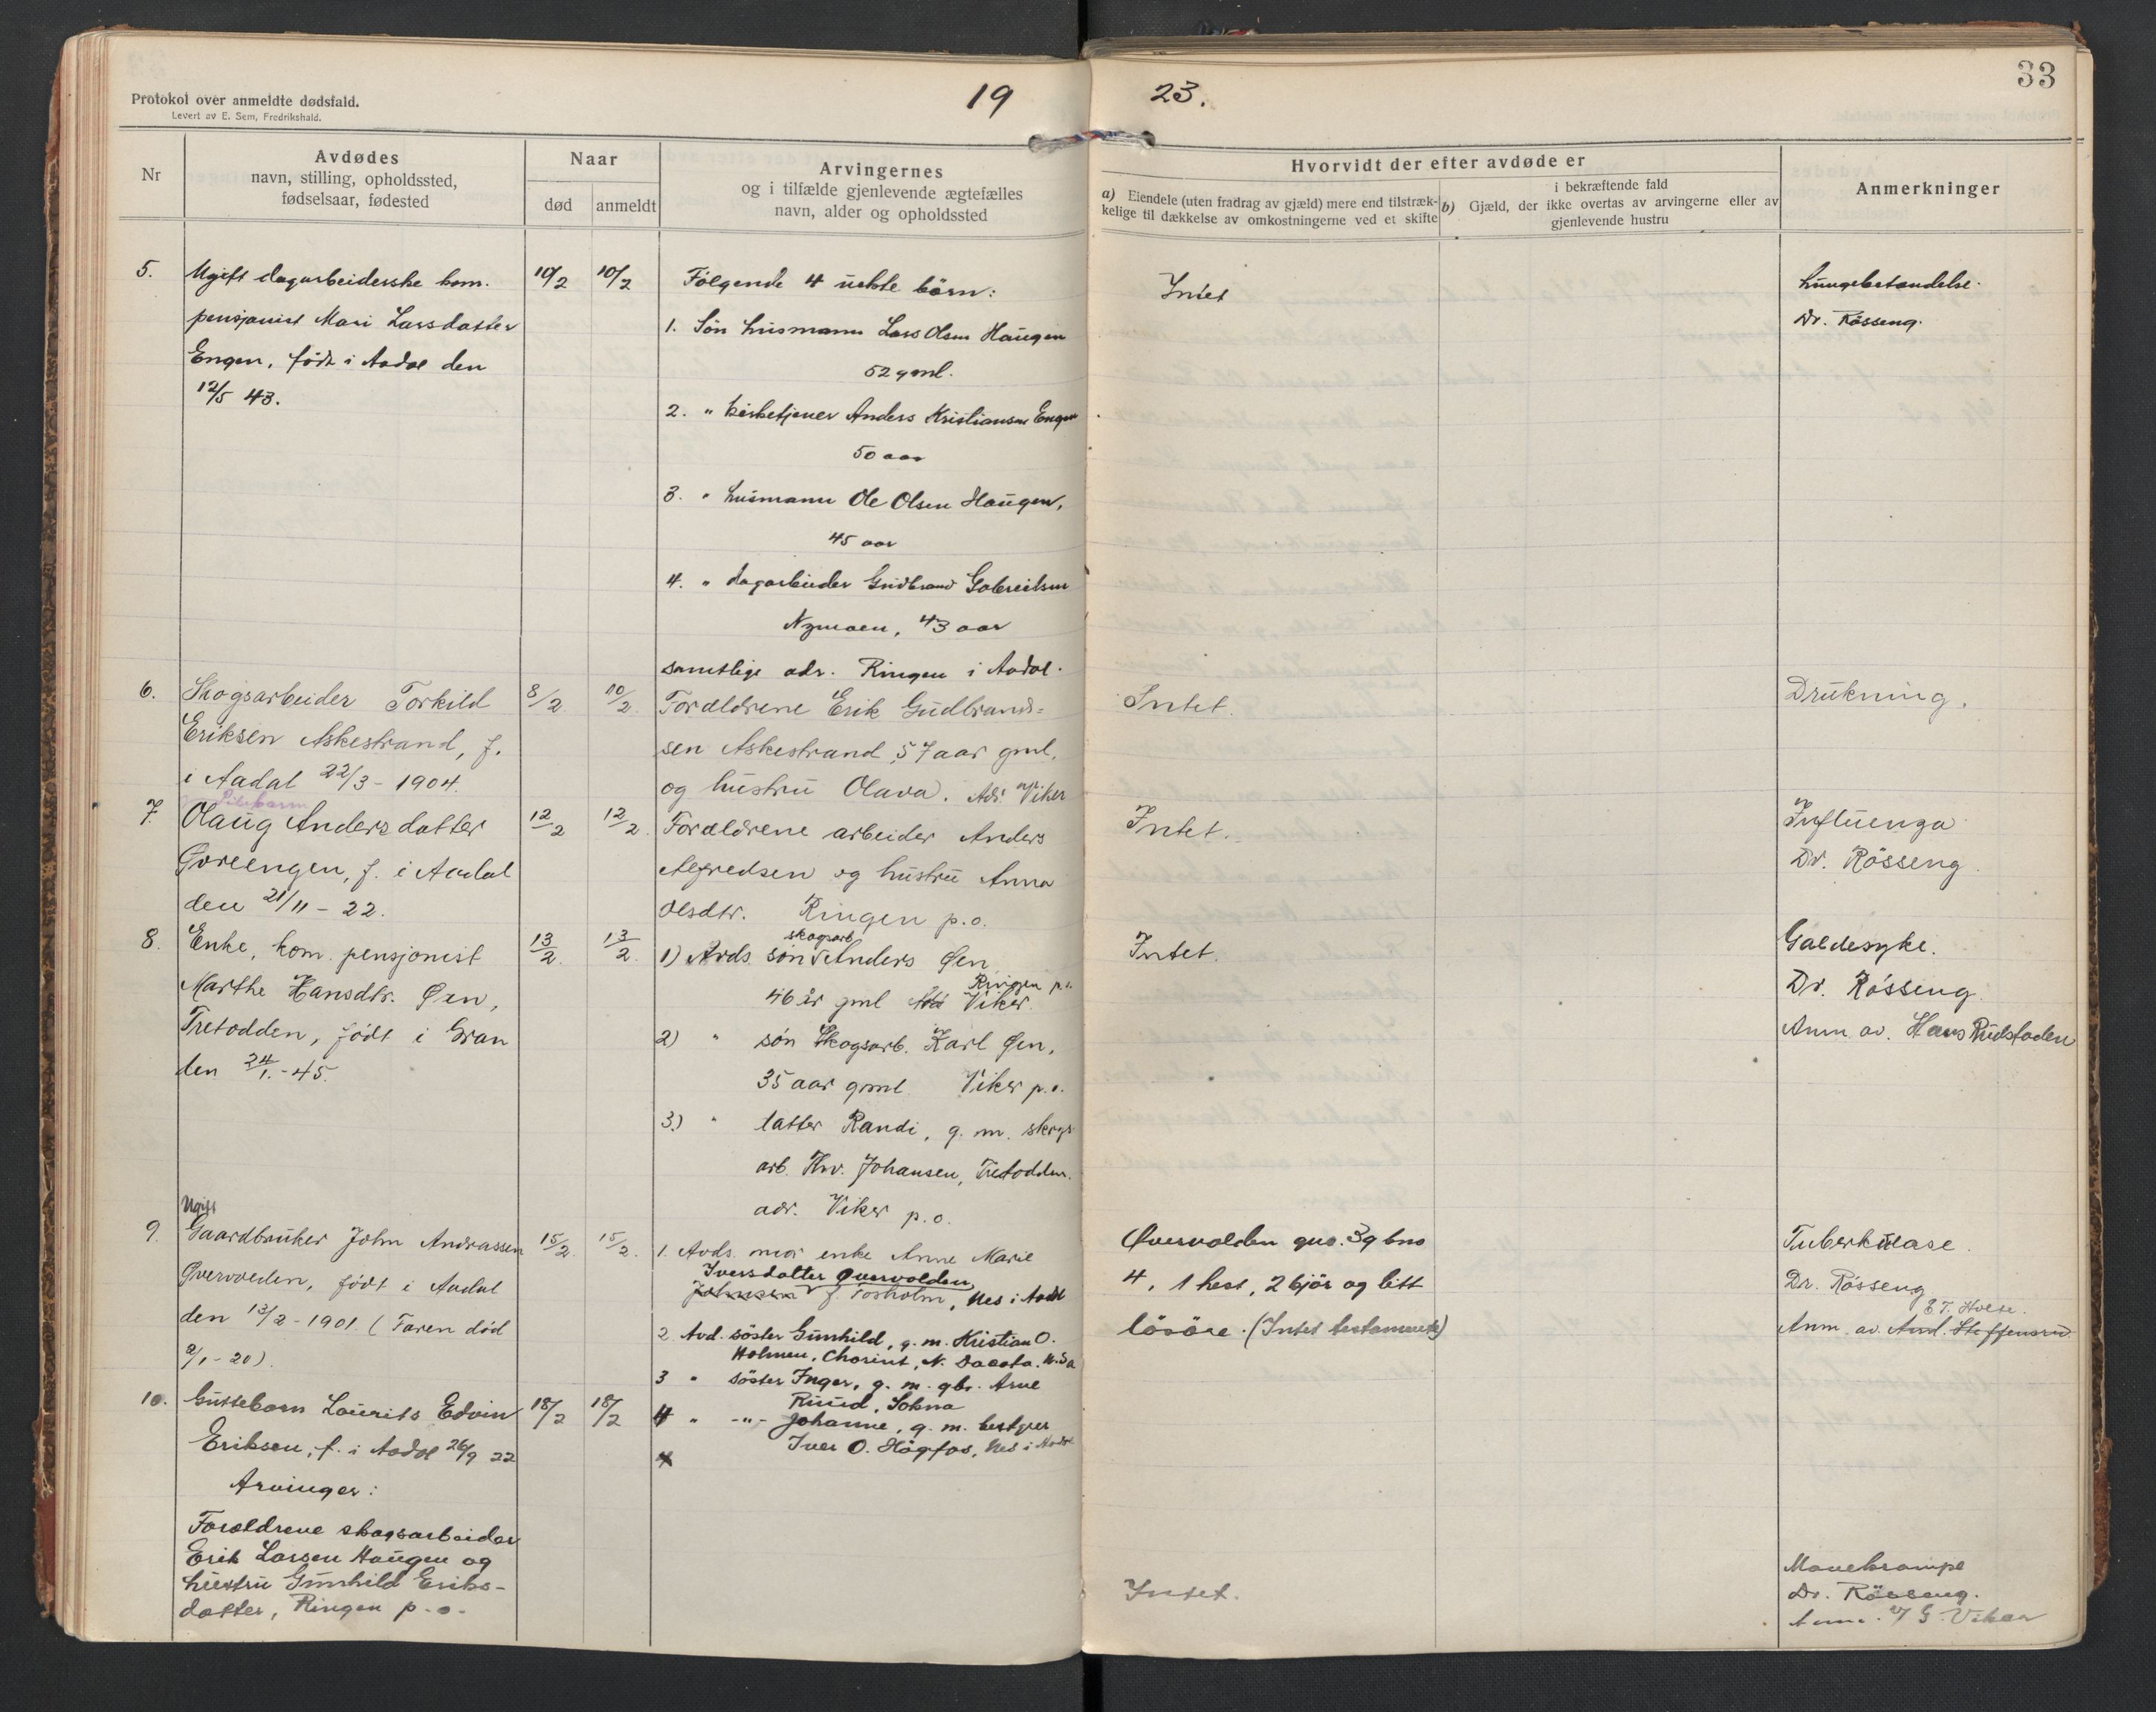 Protokol over anmeldte dødsfald.
Levert av E. Sem, Fredrikshald.
19
23.
33
Nr
Avdødes
navn, stilling, opholdssted,
fødselsaar, fødested
Naar
død
anmeldt
Arvingernes
og i tilfælde gjenlevende ægtefælles
navn, alder og opholdssted
Hvorvidt der efter avdøde er
a) Eiendele (uten fradrag av gjæld) mere end tilstræk-
kelige til dækkelse av omkostningerne ved et skifte
i bekræftende fald
b) Gjæld, der ikke overtas av arvingerne eller av
gjenlevende hustru
Anmerkninger
5.
Ugift dagarbeiderske kom.
pensjonist Mari Larsdatter
Engen, født i Aadal den
12/5 43.
10/2
10/2
Følgende 4 uekte börn:
1. Sön husmann Lars Olsen Haugen
52 gml.
2. " kirketjener Anders Kristiansen Engen
50 aar
3. " husmann Ole Olsen Haugen,
45 aar
4. " dagarbeider Gudbrand Gabrielsen
Nymoen, 43 aar
samtlige adr. Ringen i Aadal.
Intet
Lungebetændelse.
Dr. Rösseng.
6.
Skogsarbeider Torkild
Eriksen Askestrand, f.
i Aadal 22/3 - 1904.
8/2
10/2.
Forældrene Erik Gudbrand-
sen Askestrand, 57 aar gml,
og hustru Olava. Adr. Viker
Intet.
Drukning.
7.
Pikebarn
Olaug Andersdatter
Goreengen, f. i Aadal
den 21/11 - 22.
12/2
12/2.
Forældrene arbeider Anders
Alfredsen og hustru Anna
Olsdtr. Ringen p.o.
Intet.
Influenza
Dr. Rösseng.
8.
Enke, kom. pensjonist
Marthe Hansdtr. Øen,
Tretodden, født i Gran
den 24/1. - 45.
13/2.
13/2.
skogsarb.
1) Avds sön Anders Øen
Ringen p.o.
46 år gml Viker.
2) " sön Skogsarb. Karl Øen,
35 aar gml Viker p.o.
3.) " datter Randi, g. m. skogs
arb. Thv. Johansen, Tretodden.
adr. Viker p.o.
Intet.
Galdesyke.
Dr. Rösseng.
Anm. av. Hans Rudstaden
9.
Ugift
Gaardbruker John Andrassen
Qvervolden, født i Aadal
den 13/2 - 1901. (Faren död
2/1 - 20).
15/2.
15/2.
1. Avds. mor enke Anne Marie
Iversdatter Qvervolden,
Johnsen f. Fosholm, Nes i Aadal
2 Avd. söster Gunhild, g. m. Kristian O.
Holmen, N. Dacota. U.S.a
3 " söster Inger, g. m. gbr. Arne
Ruud, Sokna
4 " -"- Johanne, g. m. bestyrer
Iver O. Högfos, Nes i Aadal
Qvervolden gno. 39 bno
4, 1 hest, 2 kjör og litt
lösöre. (Intet testamente)
Tuberkulose.
Dr. Rösseng
E T. Hvese.
Anm. av. And. Steffensrud
10.
Guttebarn Laurits Edvin
Eriksen, f. i Aadal 26/9 22
Arvinger:
Forældrene skogsarbeider
Erik Larsen Haugen og
hustru Gunhild Eriks-
datter, Ringen p.o.
18/2
18/2
Intet.
Mavekrampe
Dr. Rösseng.
Anm. G. Viker